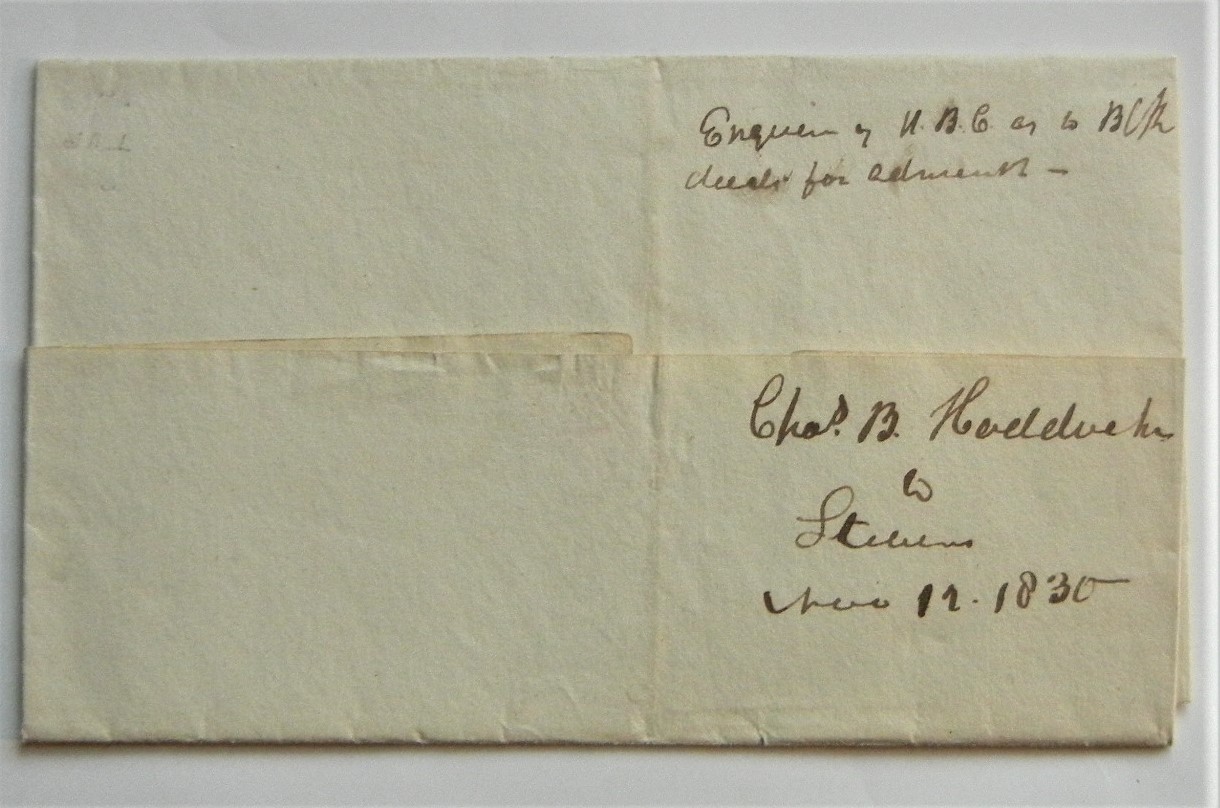 Enquire of H.B.C. as to
deeds for
Chas. B. Haddock
to
Stevens
Nov 12. 1830